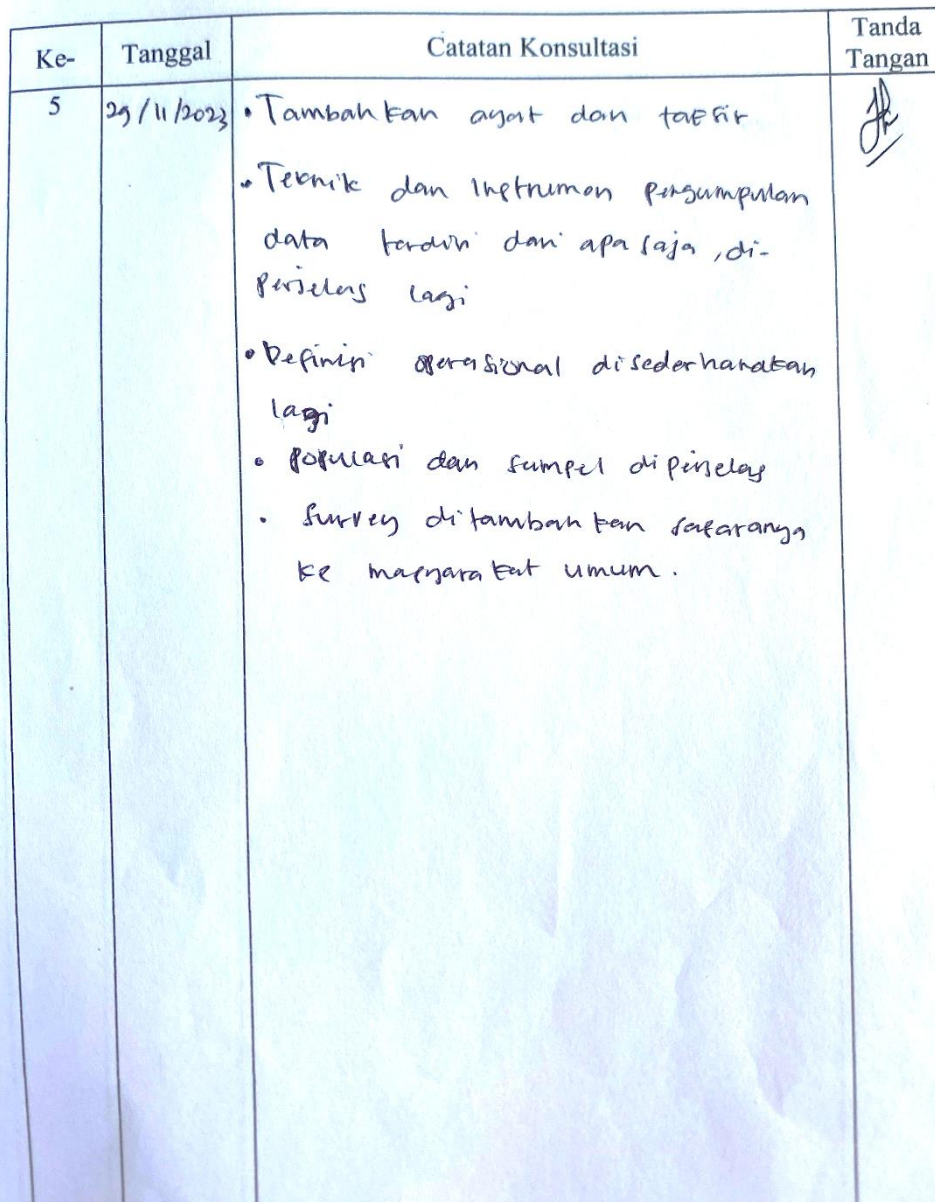 Ke- Tanggal Catatan Konsultasi Tanda Tangan
5 29/11/2023 • Tambahkan ayat dan tafsir
• Teknik dan Instrumen pengumpulan
data terdiri dari apa saja, di-
perjelas lagi
• Definisi operasional disederhanakan
lagi
• Populasi dan sampel diperjelas
• Survey ditambahkan sasarannya
ke masyarakat umum.